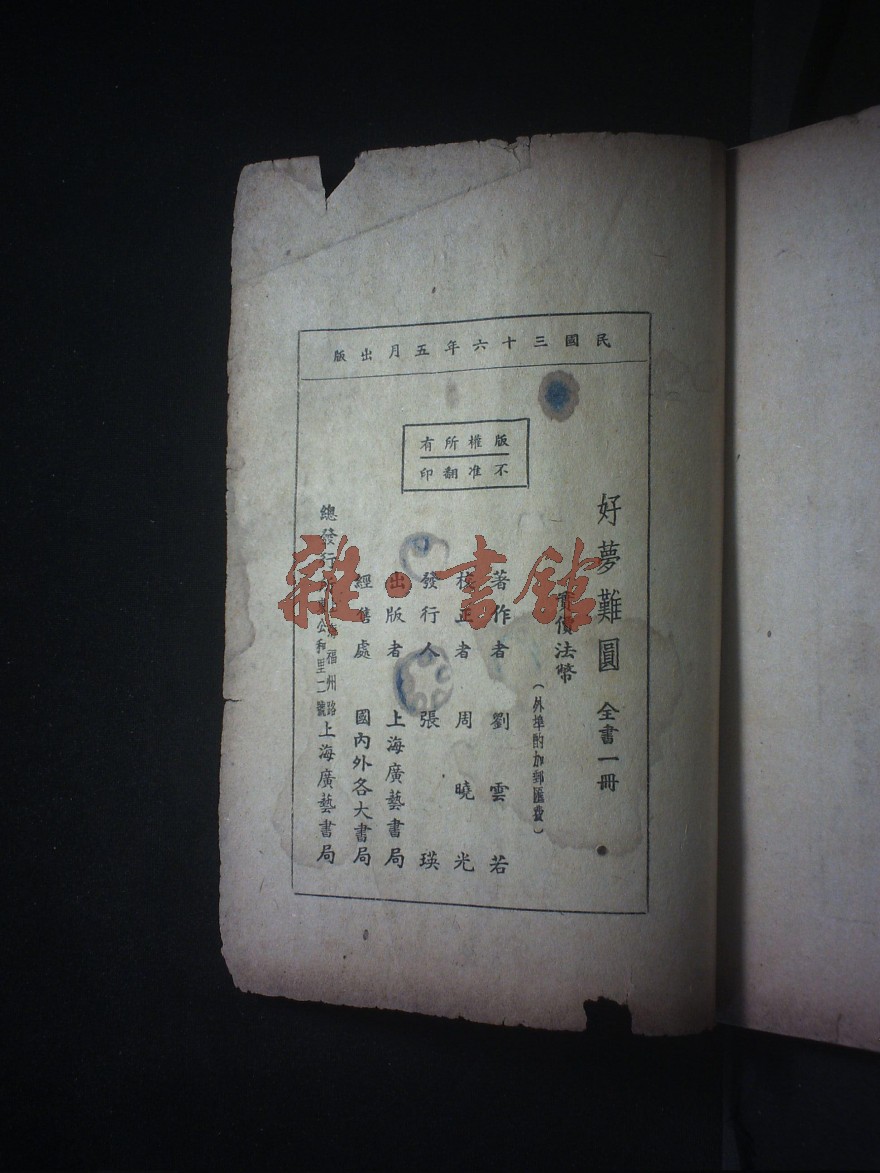 民國三十六年五月出版
版權所有
不准翻印
好夢難圓 全書一冊
實價法幣
(外埠酌加郵匯費)
著作者 劉雲若
校正者 周曉光
發行人 張瑛
出版者 上海廣藝書局
經售處 國內外各大書局
總發行 福州路公和里二號 上海廣藝書局
雜·書館